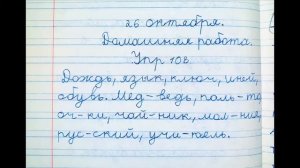 26 октября.
Домашняя работа.
Упр 108
Дождь, язык, ключ, иней,
обувь. Мед-ведь, паль-то
оч-ки, чай-ник, мол-ния
рус-ский, учи-тель.